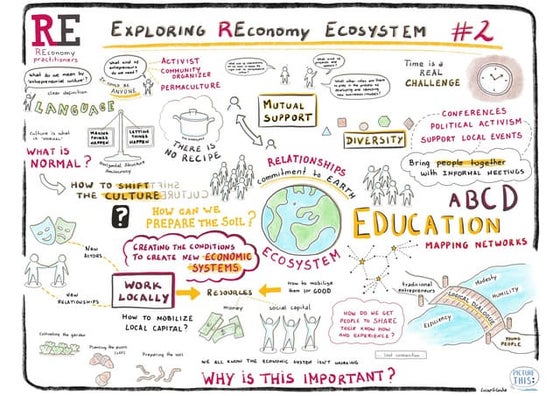 EXPLORING REconomy ECOSYSTEM #2
RE
REconomy
practitioners
what do we mean by
'entrepreneurial culture'?
clear definition
LANGUAGE
what kind of
entrepreneurs
do we need?
IT COULD BE
ANYONE
ACTIVIST
COMMUNITY
ORGANIZER
PERMACULTURE
Time is a
REAL
CHALLENGE
MUTUAL
SUPPORT
CONFERENCES
POLITICAL ACTIVISM
SUPPORT LOCAL EVENTS
DIVERSITY
Bring people together
with INFORMAL MEETINGS
Culture is what
is 'NORMAL'
WHAT IS
NORMAL?
MAKING
THINGS
HAPPEN
LETTING
THINGS
HAPPEN
THERE IS
NO RECIPE
RELATIONSHIPS
commitment to EARTH
ECOSYSTEM
HOW TO SHIFT
THE CULTURE
SHIFT
CULTURE
?
HOW CAN WE
PREPARE THE SOIL?
ABCD
EDUCATION
MAPPING NETWORKS
CREATING THE CONDITIONS
TO CREATE NEW ECONOMIC
SYSTEMS
New
ACTORS
NEW
RELATIONSHIPS
WORK
LOCALLY
RESOURCES
How to mobilize
them for GOOD
money
social capital
HOW TO MOBILIZE
LOCAL CAPITAL?
HOW DO WE GET
PEOPLE TO SHARE
THEIR KNOW HOW
AND EXPERIENCE?
traditional
entrepreneurs
Modesty
HUMILITY
LOGICAL DIALOGUE
Efficiency
YOUNG
PEOPLE
Lost connection
Cultivating the garden
Planting the seeds
Preparing the soil
WE ALL KNOW THE ECONOMIC SYSTEM ISN'T WORKING
WHY IS THIS IMPORTANT?
PICTURE
THIS: